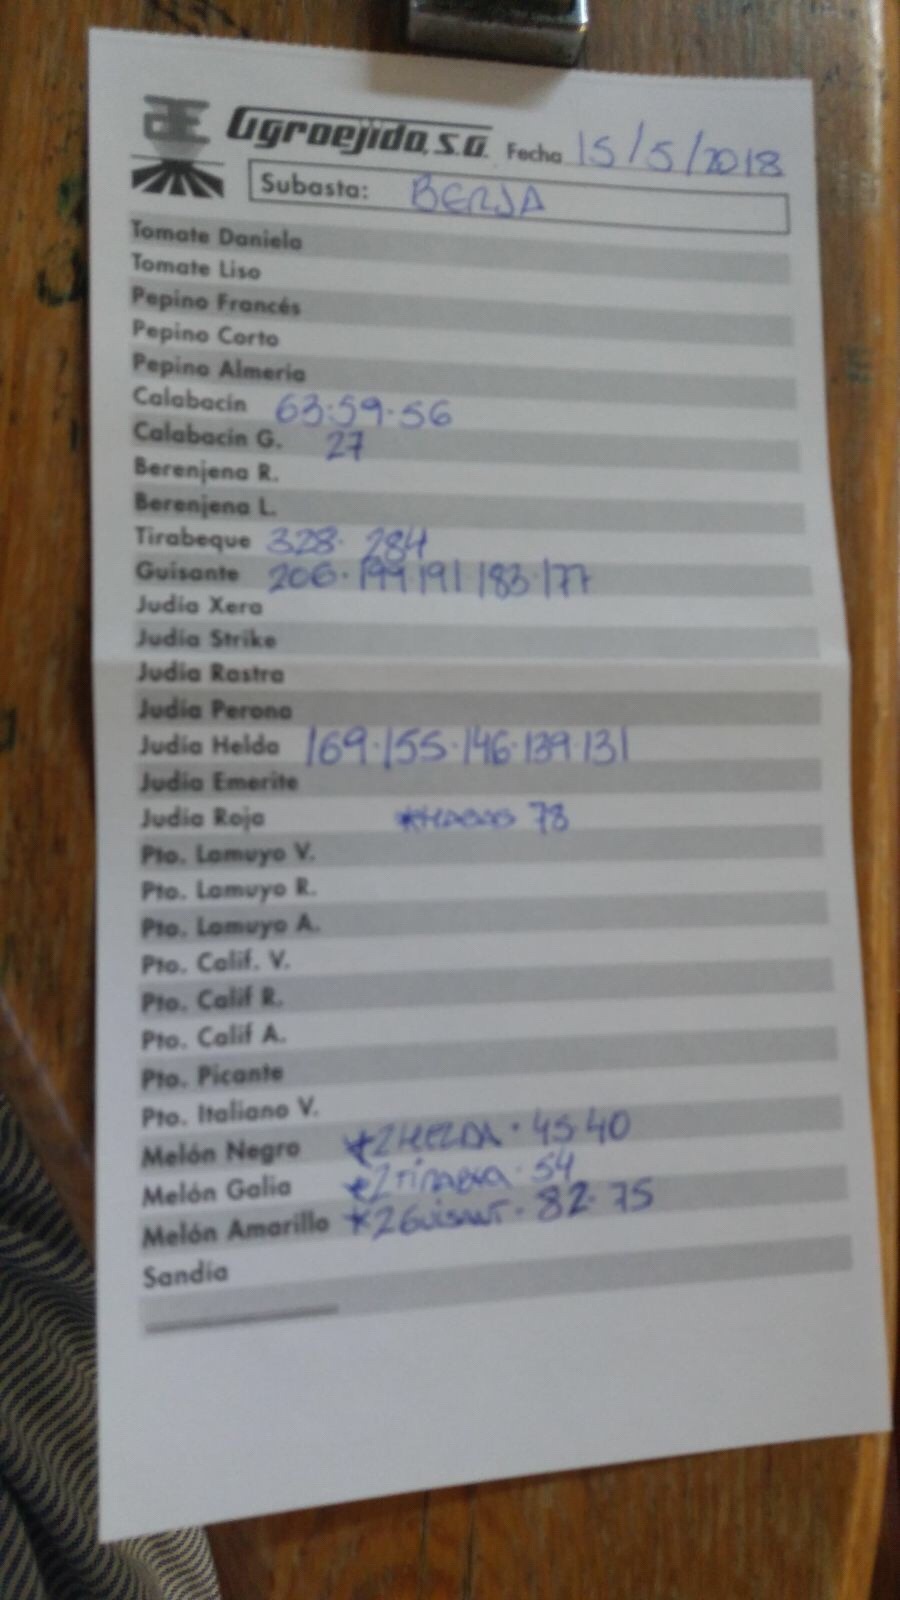 Agroejido, S.A. Fecha 15/5/2018
Subasta: BERJA
Tomate Daniela
Tomate Liso
Pepino Francés
Pepino Corto
Pepino Almería
Calabacín 63·59·56
Calabacín G. 27
Berenjena R.
Berenjena L.
Tirabeque 328· 284
Guisante 206·199·191·183·177
Judía Xera
Judía Strike
Judía Rastra
Judía Perona
Judía Helda 169·155·146·139·131
Judía Emerite
Judía Roja *HABAS 78
Pto. Lamuyo V.
Pto. Lamuyo R.
Pto. Lamuyo A.
Pto. Calif. V.
Pto. Calif R.
Pto. Calif A.
Pto. Picante
Pto. Italiano V.
Melón Negro *2HELDA · 45·40
Melón Galia *2 · 54
Melón Amarillo *2GUISANT · 82· 75
Sandía